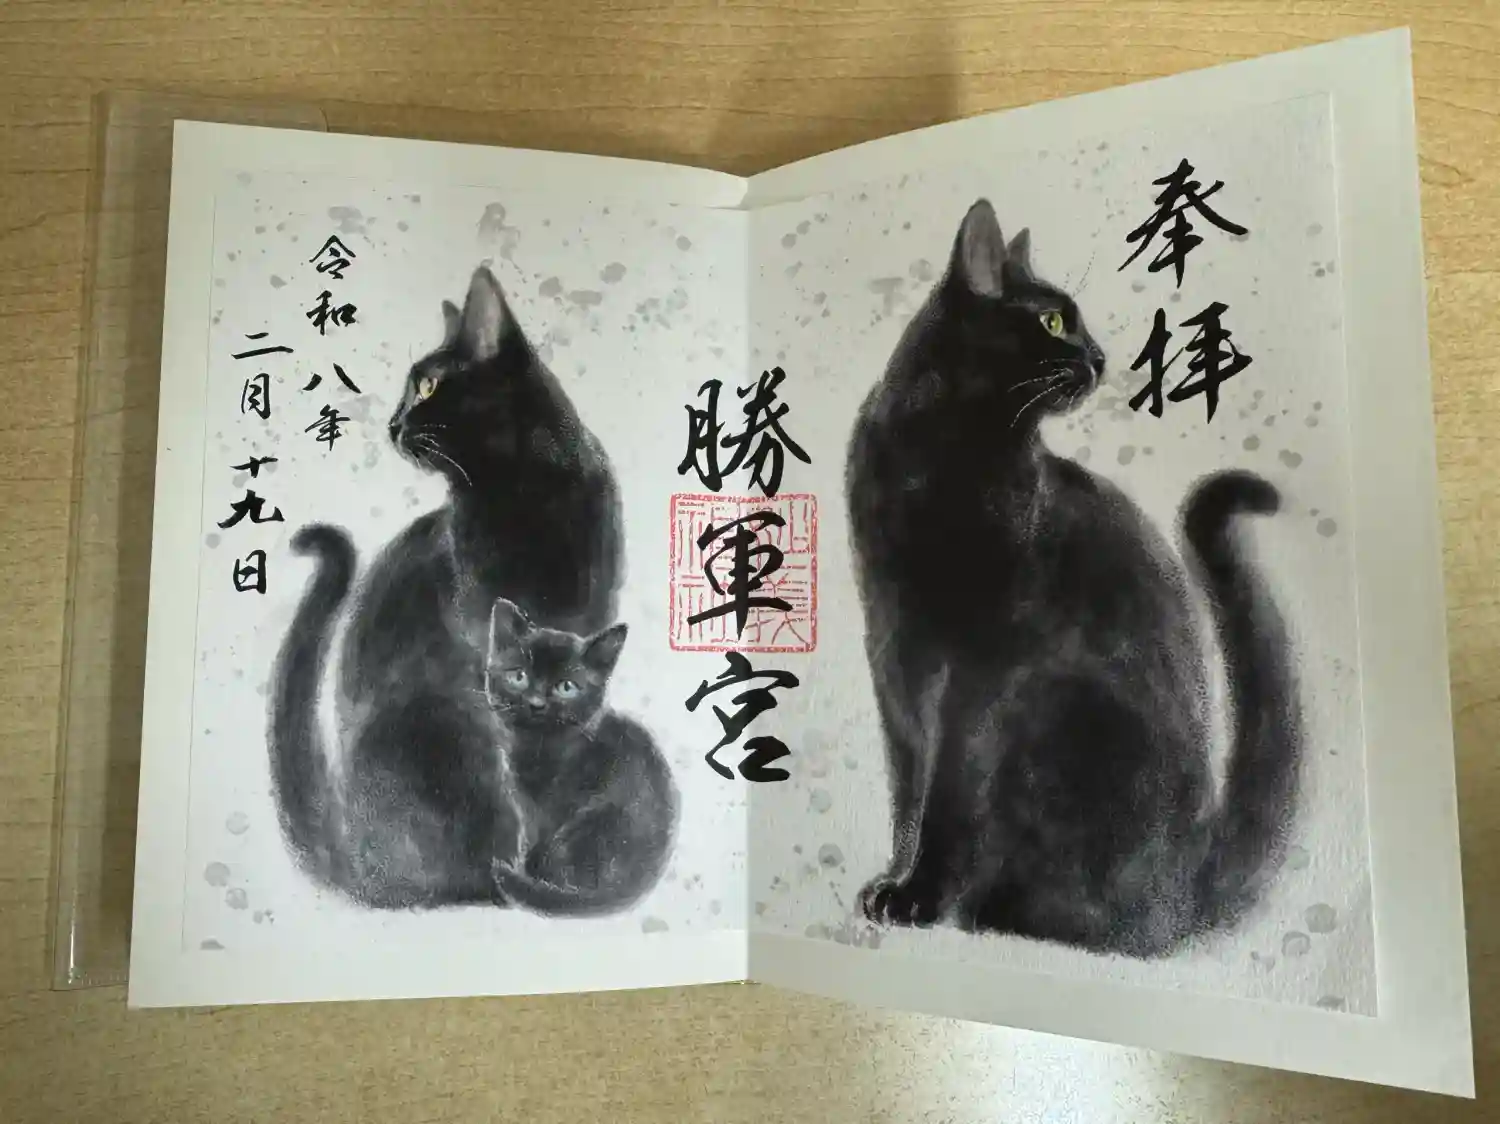 奉拝
勝軍宮
令和八年
二月十九日